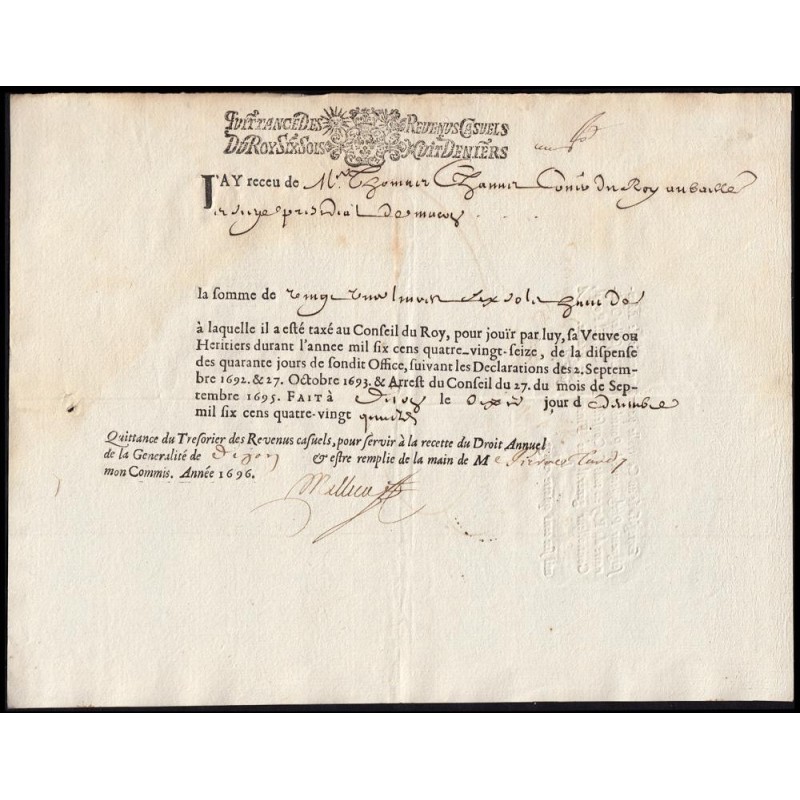 QUITTANCE DES REVENUS CASUELS
DU ROY SIX SOLS HUIT DENIERS
J'AY receu de Mr Thomas Chanuet Coner du Roy au bailliage
et siege presidial de macon
la somme de vingt une livres six sols huit d
à laquelle il a esté taxé au Conseil du Roy, pour jouïr par luy, sa Veuve ou
Heritiers durant l'annee mil six cens quatre-vingt-seize, de la dispense
des quarante jours de sondit Office, suivant les Declarations des 2. Septem-
bre 1692. & 27. Octobre 1693. & Arrest du Conseil du 27. du mois de Sep-
tembre 1695. FAIT À Dijon le jour d decembre
mil six cens quatre-vingt quinze
Quittance du Tresorier des Revenus casuels, pour servir à la recette du Droit Annuel
de la Generalité de Dijon & estre remplie de la main de Me Pierre
mon Commis. Année 1696.